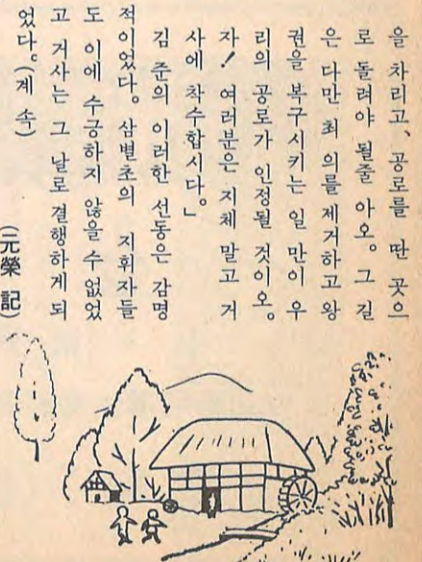 을 차리고、 공로를 딴 곳으
로 돌려야 될줄 아오。 그 길
은 다만 최 의를 제거하고 왕
권을 복구시키는 일 만이 우
리의 공로가 인정될 것이오。
자! 여러분은 지체 말고 거
사에 착수합시다。」
김 준의 이러한 선동은 감명
적이었다。 삼별초의 지휘자들
도 이에 수긍하지 않을 수 없었
고 거사는 그 날로 결행하게 되
었다。(계 속)
(元榮 記)